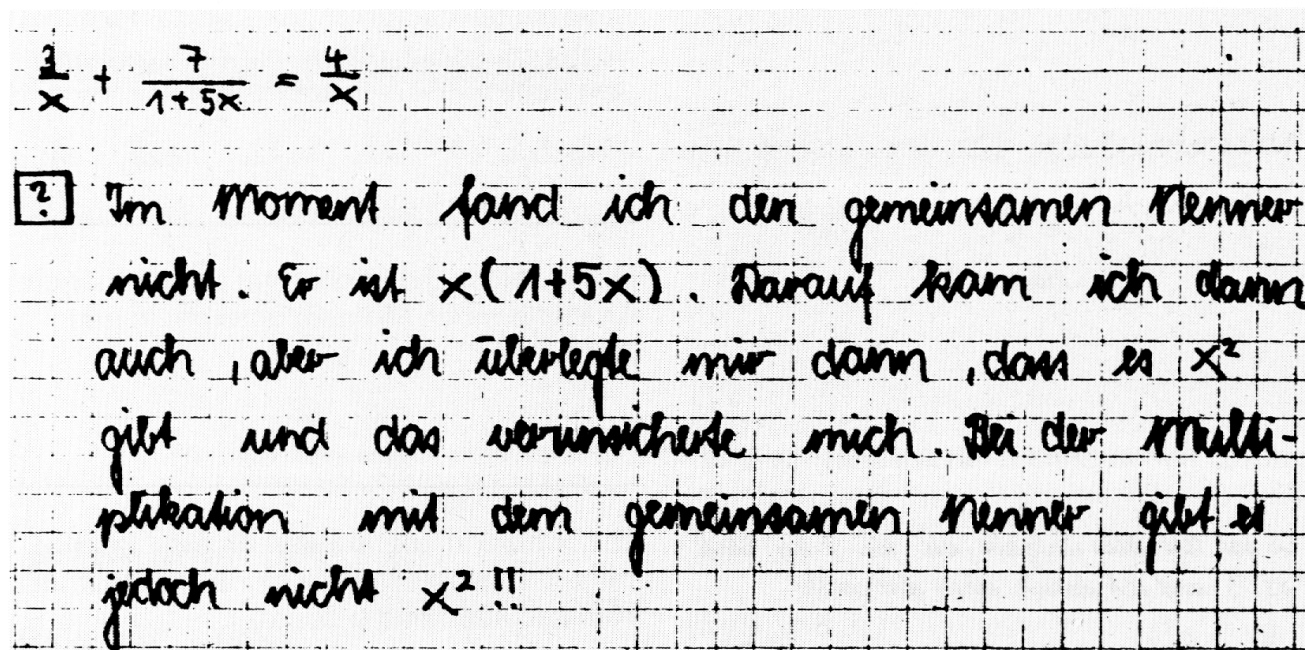 3/x + 7/(1+5x) = 4/x
? Im Moment fand ich den gemeinsamen Nenner
nicht. Er ist x(1+5x). Darauf kam ich dann
auch, aber ich überlegte mir dann, dass es x²
gibt und das verunsicherte mich. Bei der Multi-
plikation mit dem gemeinsamen Nenner gibt es
jedoch nicht x²!!